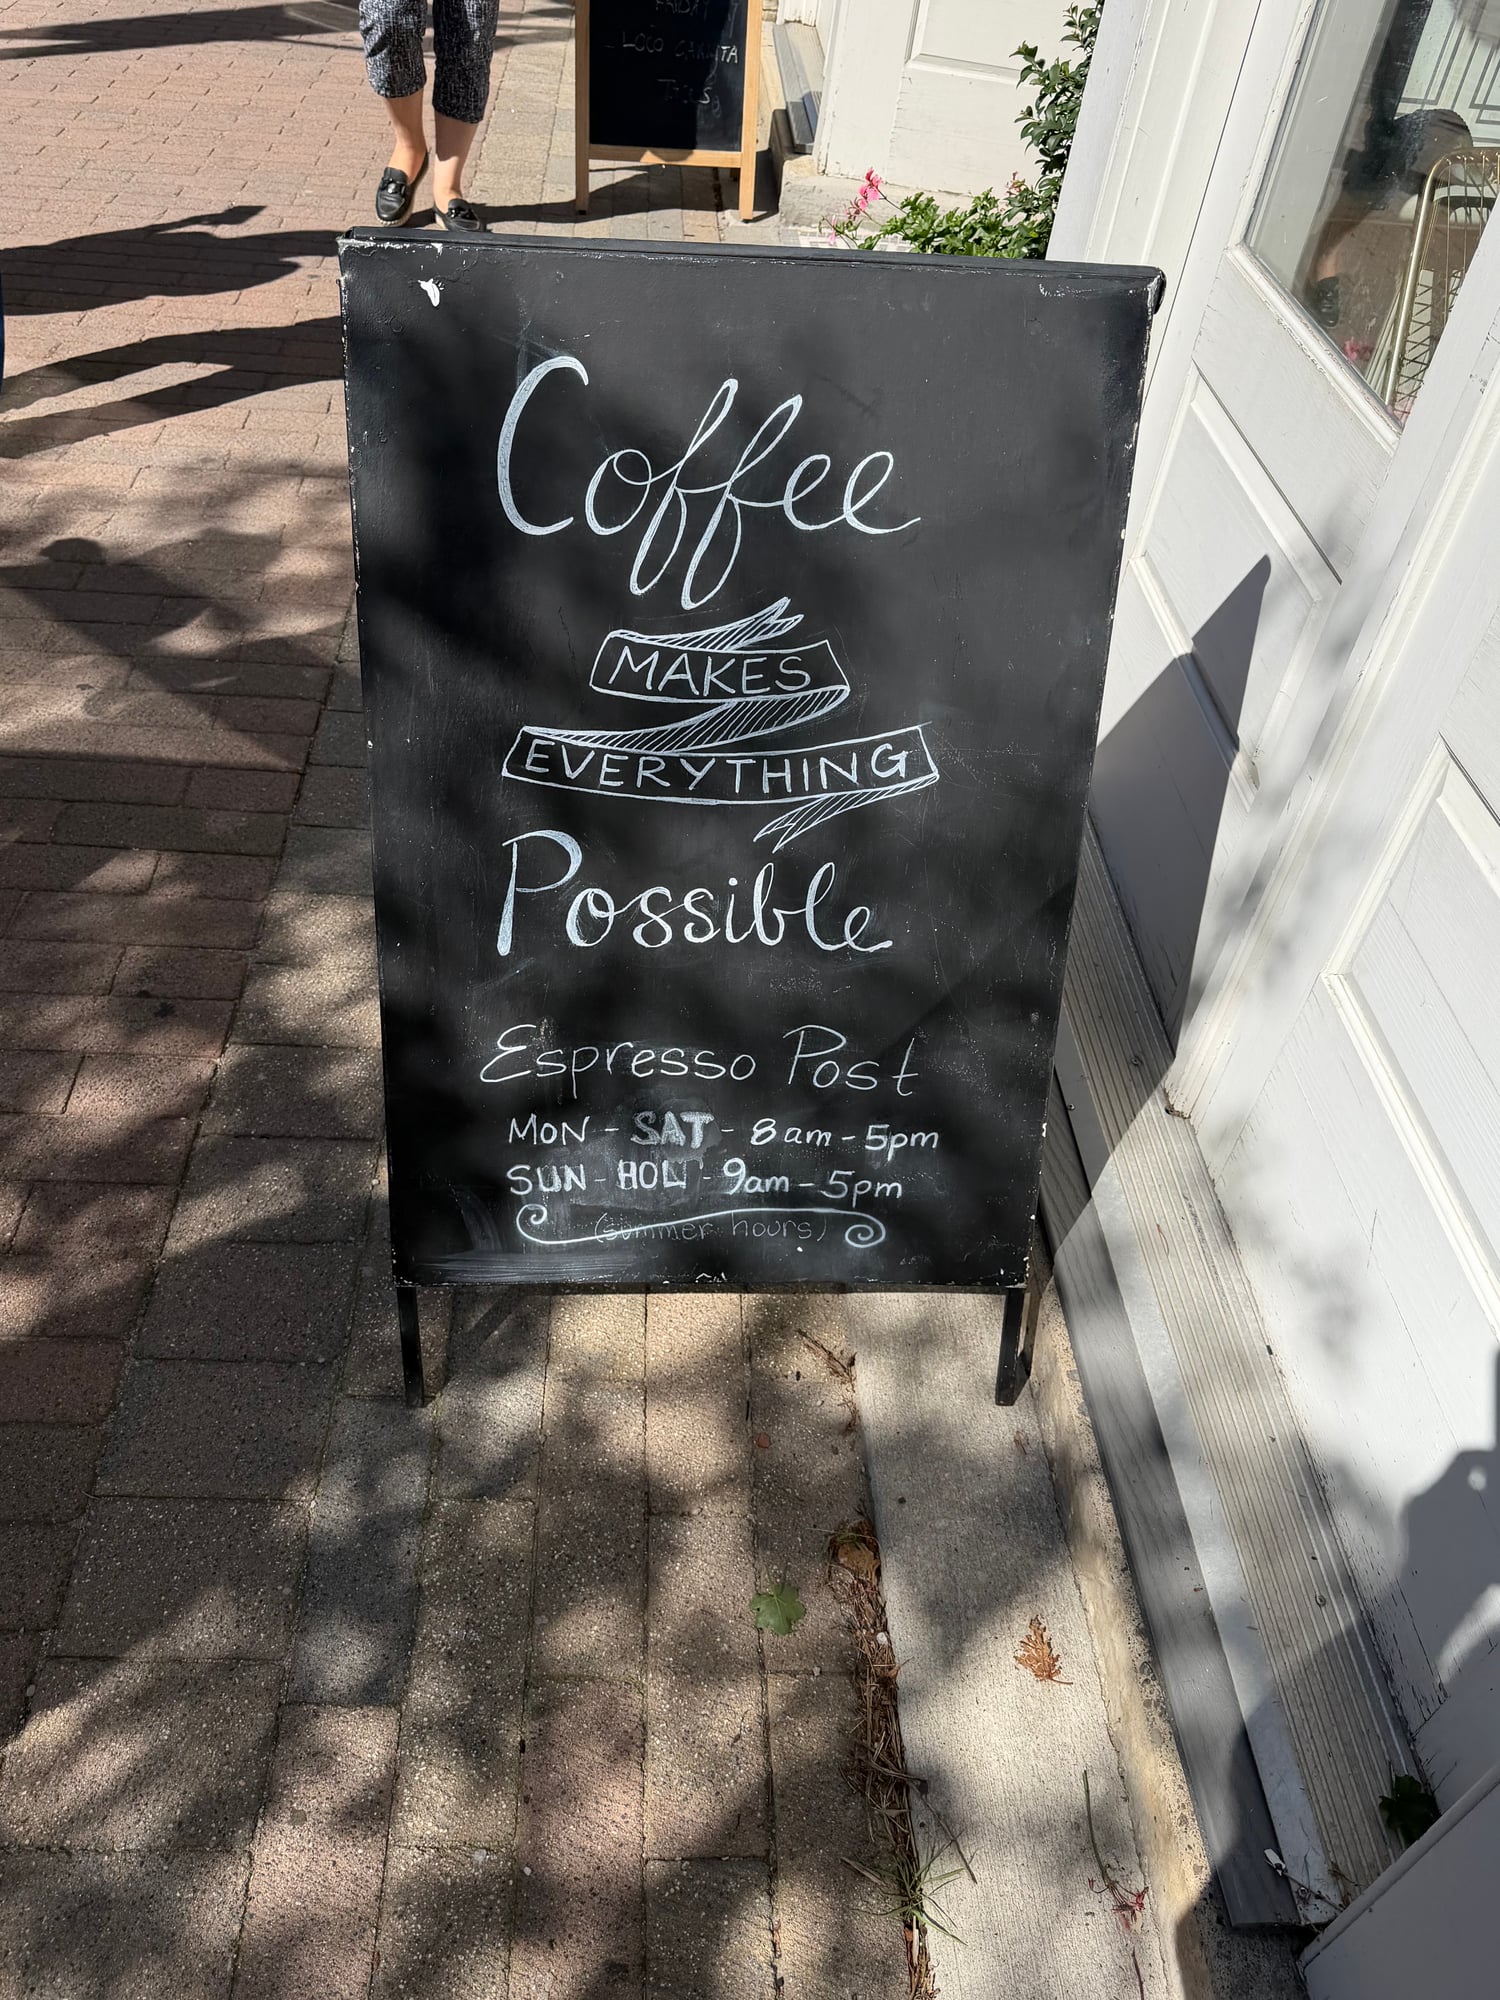 FRIDAY
LOCO
Coffee
MAKES
EVERYTHING
Possible
Espresso Post
MON - SAT - 8am - 5pm
SUN - HOL - 9am - 5pm
(summer hours)